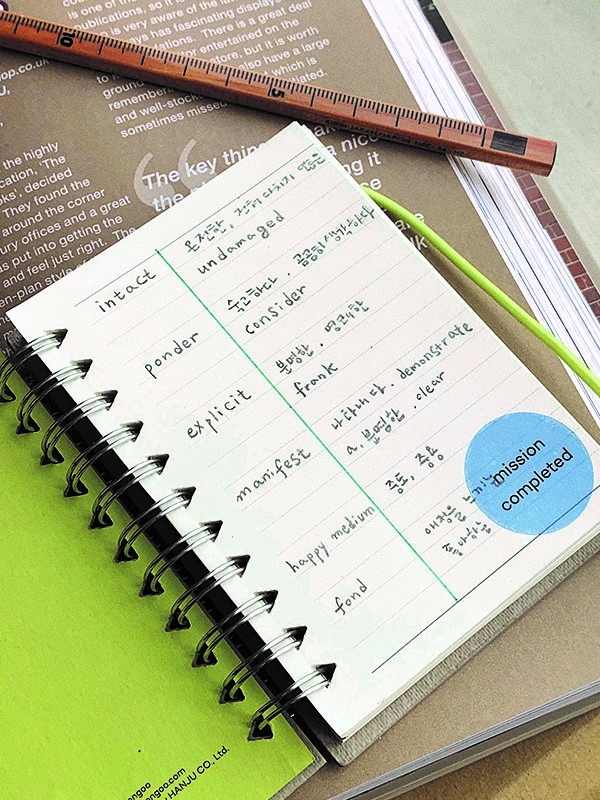 is one of the
publications, so it is
is very aware of the la
ways has fascinating display
There is a great deal
entertained on the
store, but it is worth
also have a large
which is
and well-stock
sometimes missed
10
5
op.co.uk
the highly
cation, 'The
oks', decided
They found the
around the corner
ury offices and a great
s put into getting the
and feel just right. The
en-plan style
The key thin
a nice
g it
intact 온전한, 전혀 다치지 않은
undamaged
ponder 숙고하다. 곰곰히 생각하다
consider
explicit 분명한. 명쾌한
frank
manifest 나타내다. demonstrate
a. 분명한. clear
happy medium 중도, 중용
fond 애정을 느끼는
mission
completed
engoo
engoo.com
HANJU CO., Ltd.